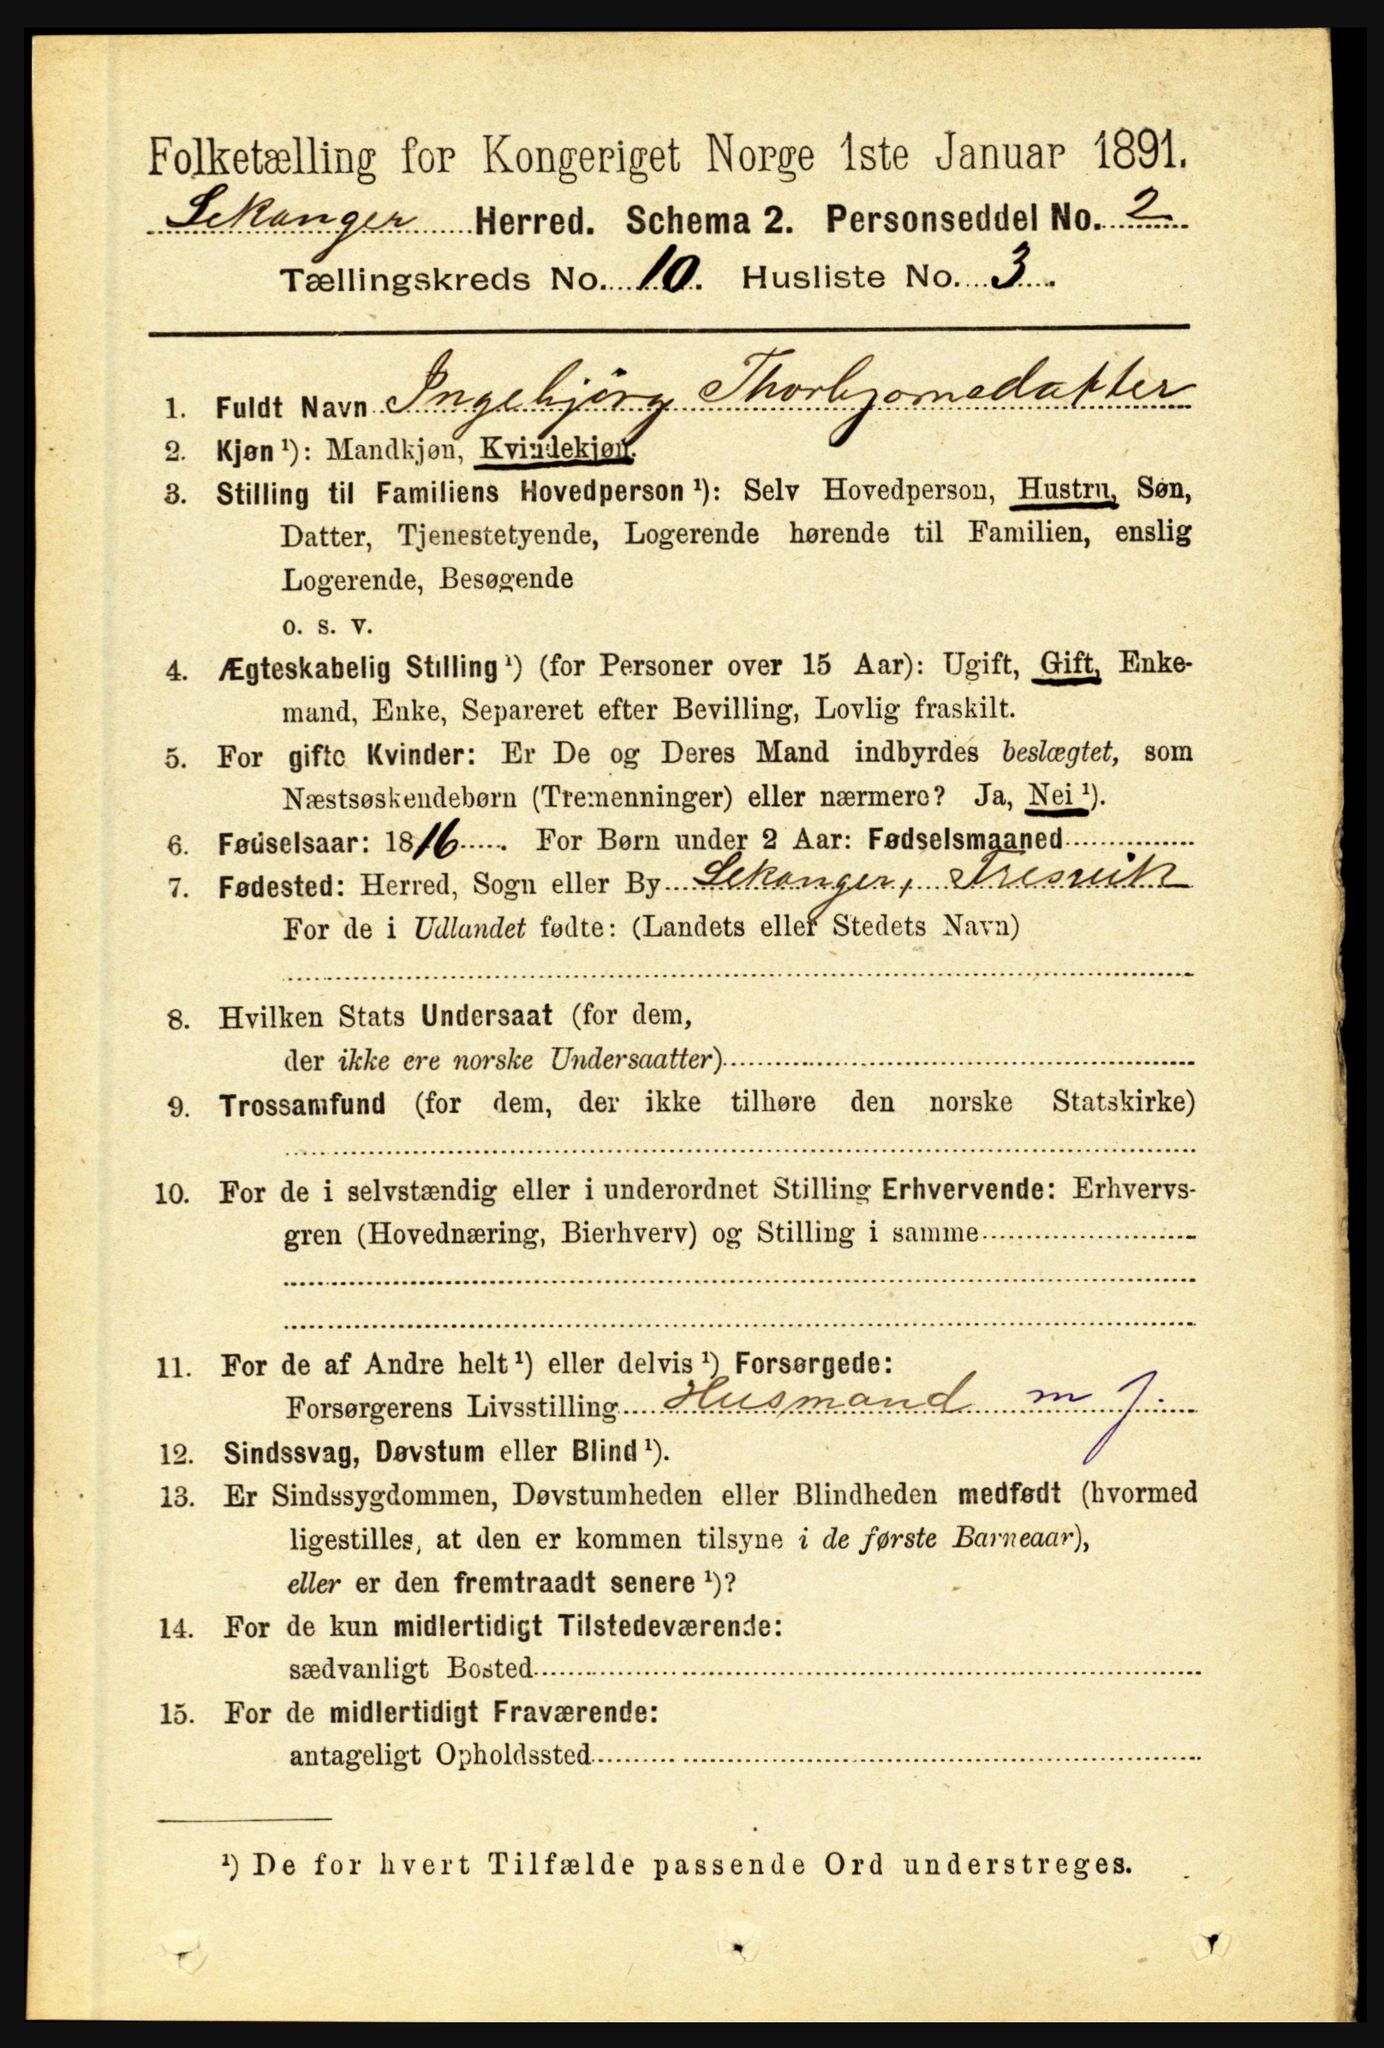 Folketælling for Kongeriget Norge 1ste Januar 1891.
Lekanger Herred. Schema 2. Personseddel No. 2
Tællingskreds No. 10. Husliste No. 3.
1. Fuldt Navn Ingebjörg Thorbjornsdatter
2. Kjøn ¹): Mandkjøn, Kvindekjøn.
3. Stilling til Familiens Hovedperson ¹): Selv Hovedperson, Hustru, Søn,
Datter, Tjenestetyende, Logerende hørende til Familien, enslig
Logerende, Besøgende
o. s. v.
4. Ægteskabelig Stilling ¹) (for Personer over 15 Aar): Ugift, Gift, Enke-
mand, Enke, Separeret efter Bevilling, Lovlig fraskilt.
5. For gifte Kvinder: Er De og Deres Mand indbyrdes beslægtet, som
Næstsøskendebørn (Tremenninger) eller nærmere? Ja, Nei ¹).
6. Fødselsaar: 1816. For Børn under 2 Aar: Fødselsmaaned
7. Fødested: Herred, Sogn eller By Lekanger, Fresvik
For de i Udlandet fødte: (Landets eller Stedets Navn)
8. Hvilken Stats Undersaat (for dem,
der ikke ere norske Undersaatter)
9. Trossamfund (for dem, der ikke tilhøre den norske Statskirke)
10. For de i selvstændig eller i underordnet Stilling Erhvervende: Erhvervs-
gren (Hovednæring, Bierhverv) og Stilling i samme
11. For de af Andre helt ¹) eller delvis ¹) Forsørgede:
Forsørgerens Livsstilling Husmand m j.
12. Sindssvag, Døvstum eller Blind ¹).
13. Er Sindssygdommen, Døvstumheden eller Blindheden medfødt (hvormed
ligestilles, at den er kommen tilsyne i de første Barneaar),
eller er den fremtraadt senere ¹)?
14. For de kun midlertidigt Tilstedeværende:
sædvanligt Bosted
15. For de midlertidigt Fraværende:
antageligt Opholdssted
¹) De for hvert Tilfælde passende Ord understreges.